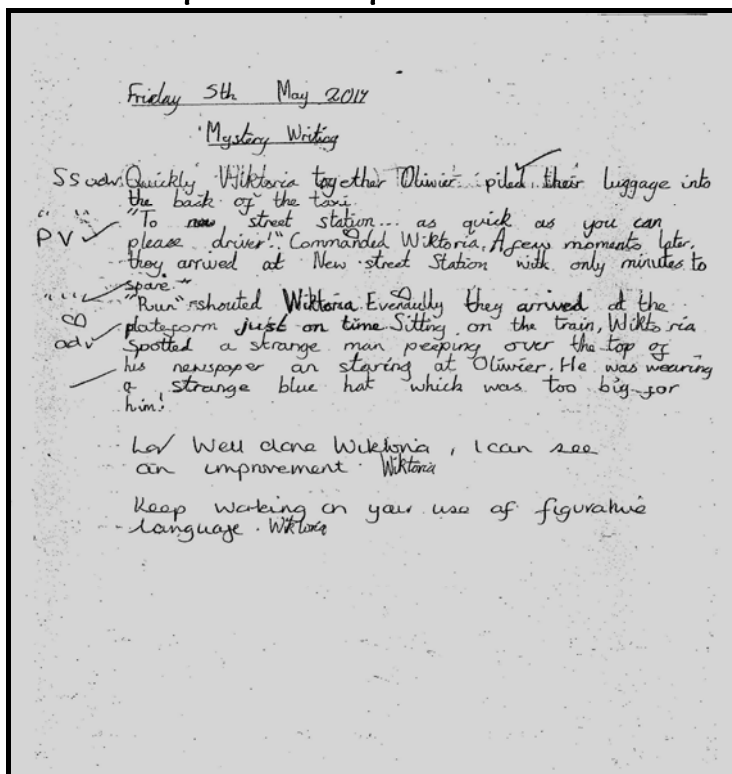 Friday 5th May 2017
Mystery Writing
SS adv. Quickly Wiktoria together Olivier piled their luggage into
the back of the taxi.
"To new street station... as quick as you can
PV please driver!" Commanded Wiktoria. A few moments later,
they arrived at New street Station with only minutes to
spare.
"Run" shouted Wiktoria. Eventully they arrived at the
plateform just on time Sitting on the train, Wiktoria
adv Spotted a strange man peeping over the top of
his newspaper an staring at Olivier. He was wearing
a strange blue hat which was too big for
him!
Well done Wiktoria, I can see
an improvement. Wiktoria
Keep working on your use of figurative
language. Wiktoria